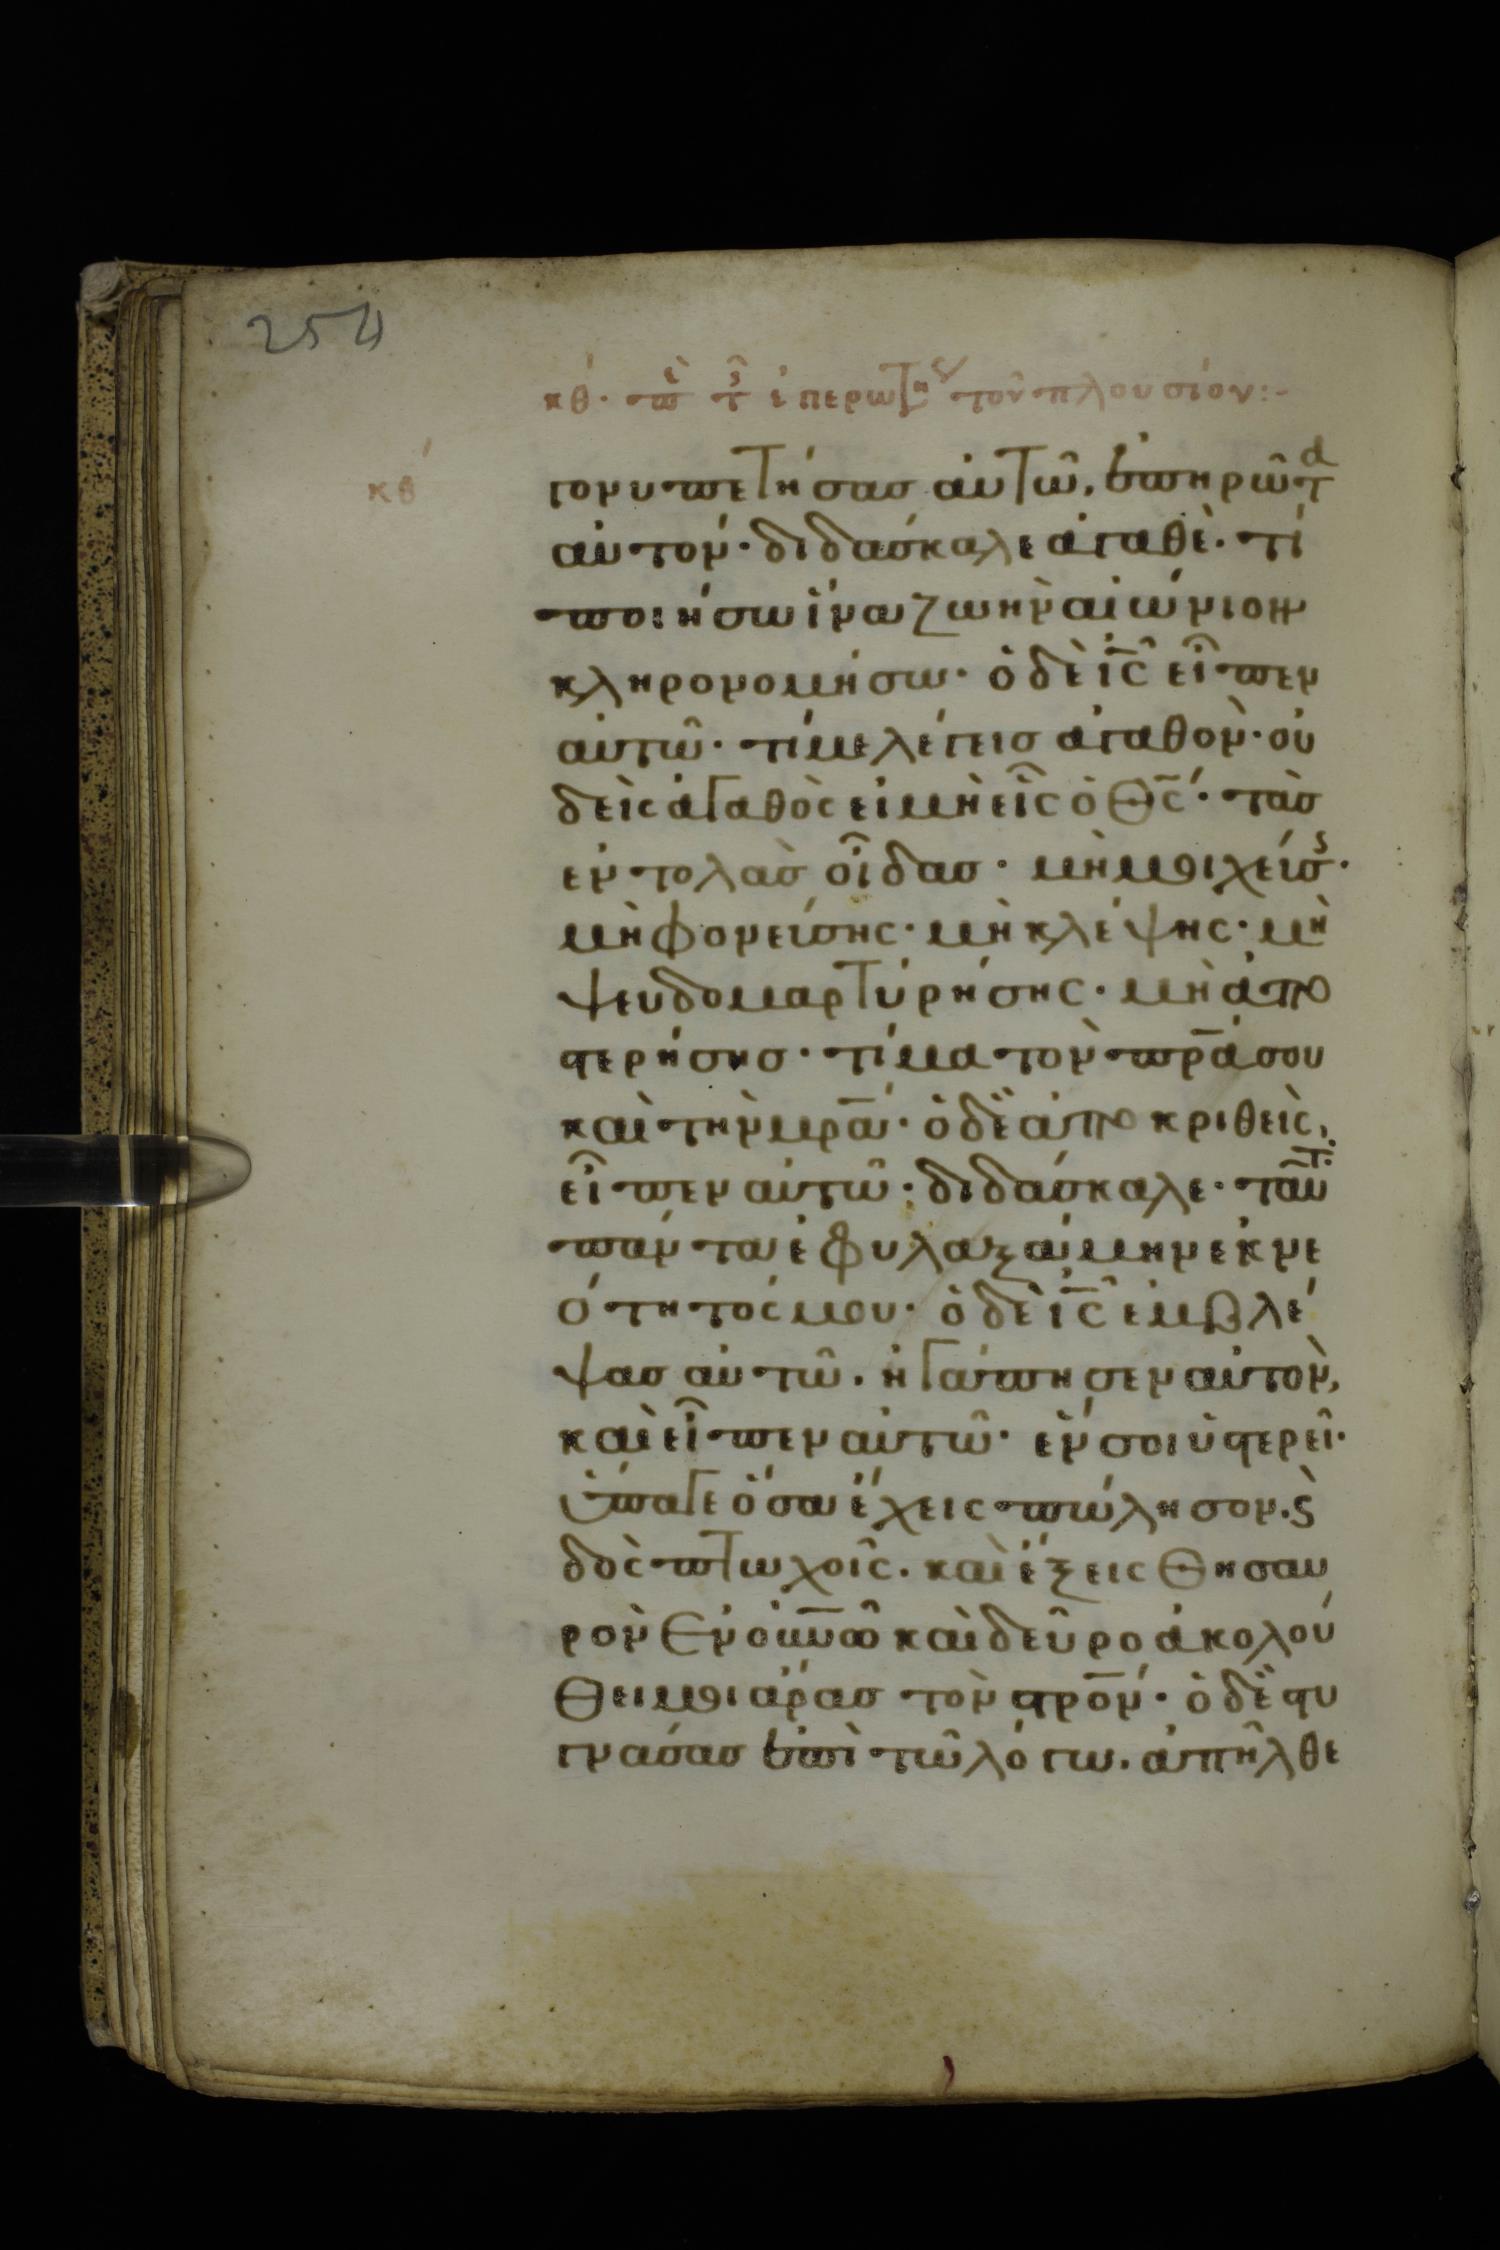 254
κθ· πὲ τ ἐπερωτη τὸν πλουσίον:-
κθ
γονυπετήσας αὐτῶ, ἐπηρώτα
αὐτόν· διδάσκαλε ἀγαθὲ· τί
ποιήσω ἵνα ζωὴν αἰώνιον
κληρονομήσω· ὁ δὲ ις εἶπεν
αὐτῶ· τί με λέγεις ἀγαθὸν· οὐ
δεὶς ἀγαθὸς εἰ μὴ εἷς ὁ θς· τὰς
ἐντολὰς οἶδας· μὴ μοιχείσης·
μὴ φονείσης· μὴ κλέψης· μὴ
ψευδομαρτύρήσης· μὴ ἀπο
στερήσης· τίμα τὸν πρα σου
καὶ τὴν μρα· ὁ δὲ ἀποκριθεὶς,
εἶπεν αὐτῶ· διδάσκαλε· ταῦτ
πάντα ἐφυλαξάμην ἐκ νε
ότητός μου· ὁ δὲ ις ἐμβλέ
ψας αὐτῶ. ἠγάπησεν αὐτὸν,
καὶ εἶπεν αὐτῶ· ἕν σοι ὑστερεῖ·
ὕπαγε ὅσα ἔχεις πώλησον. ϛ
δὸς πτωχοῖς. καὶ ἕξεις θησαυ
ρὸν ἐν οὐνῶ καὶ δεῦρο ἀκολού
θει μοι ἄρας τὸν στρον· ὁ δὲ στυ
γνάσας ἐπὶ τῶ λόγω. ἀπῆλθε